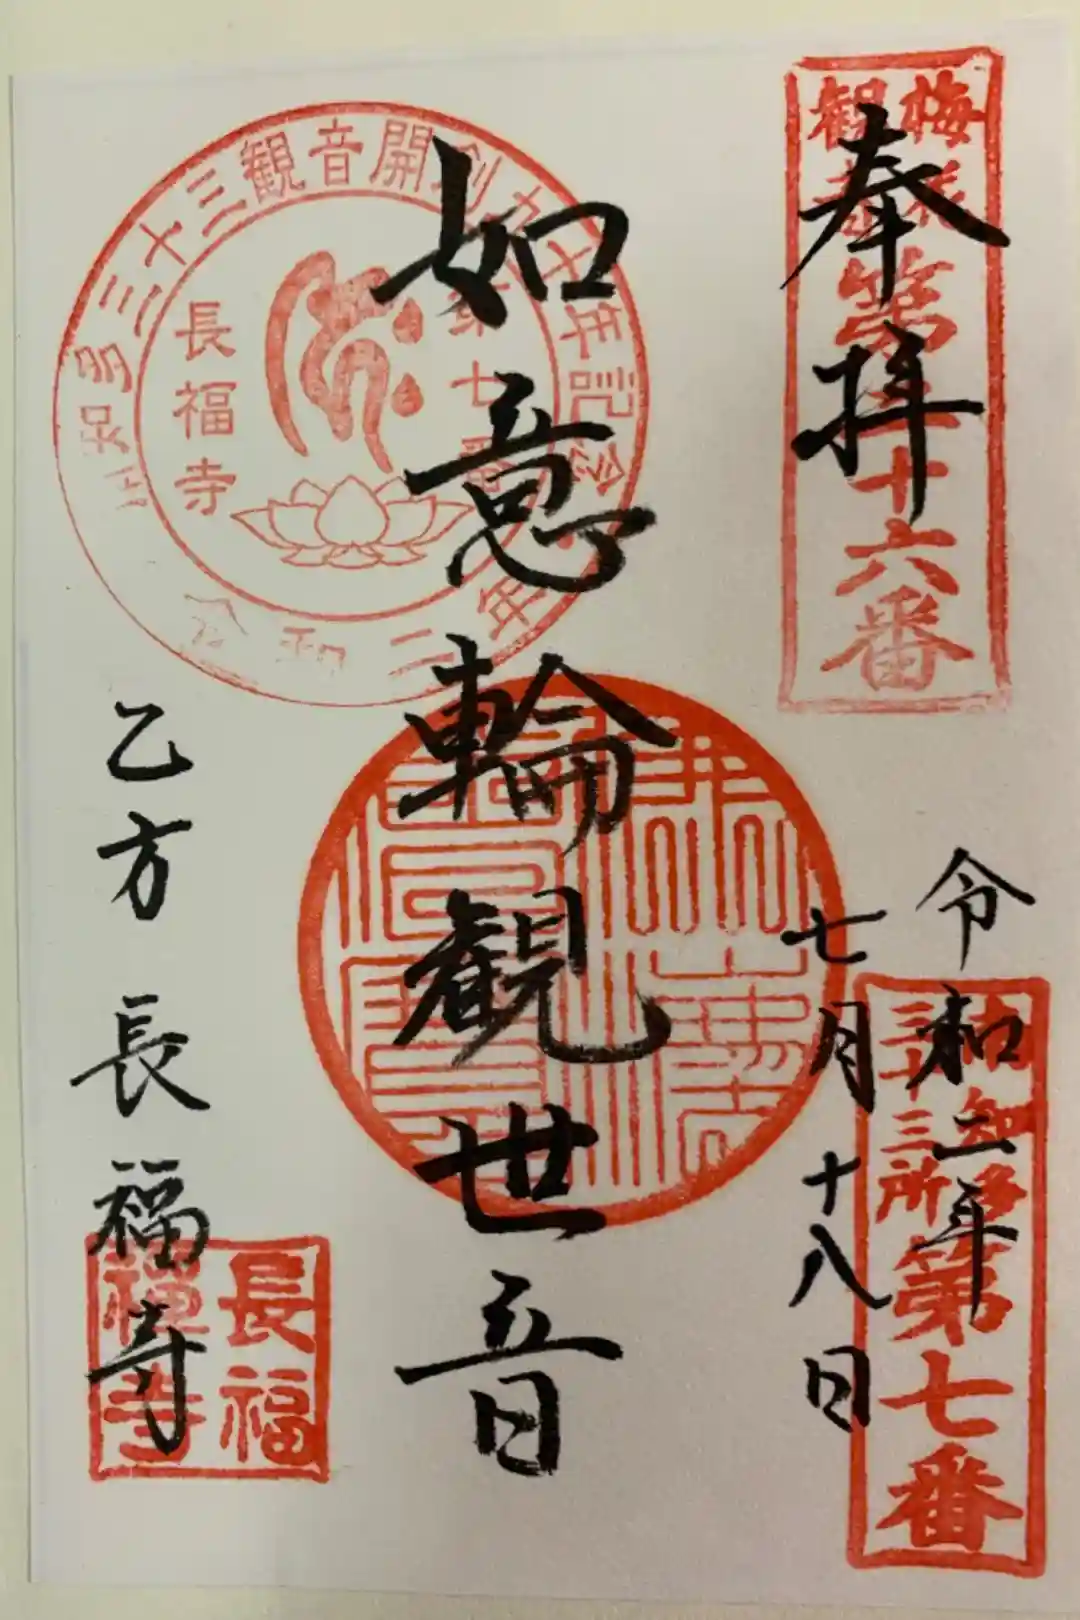 奉拝
令和二年
七月十八日
如意輪観世音
乙方 長福寺
梅花観音
十六番
南知多三十三所
第七番
知多三十三観音開創九十年記念
第七番
長福寺
令和二年
長福禅寺